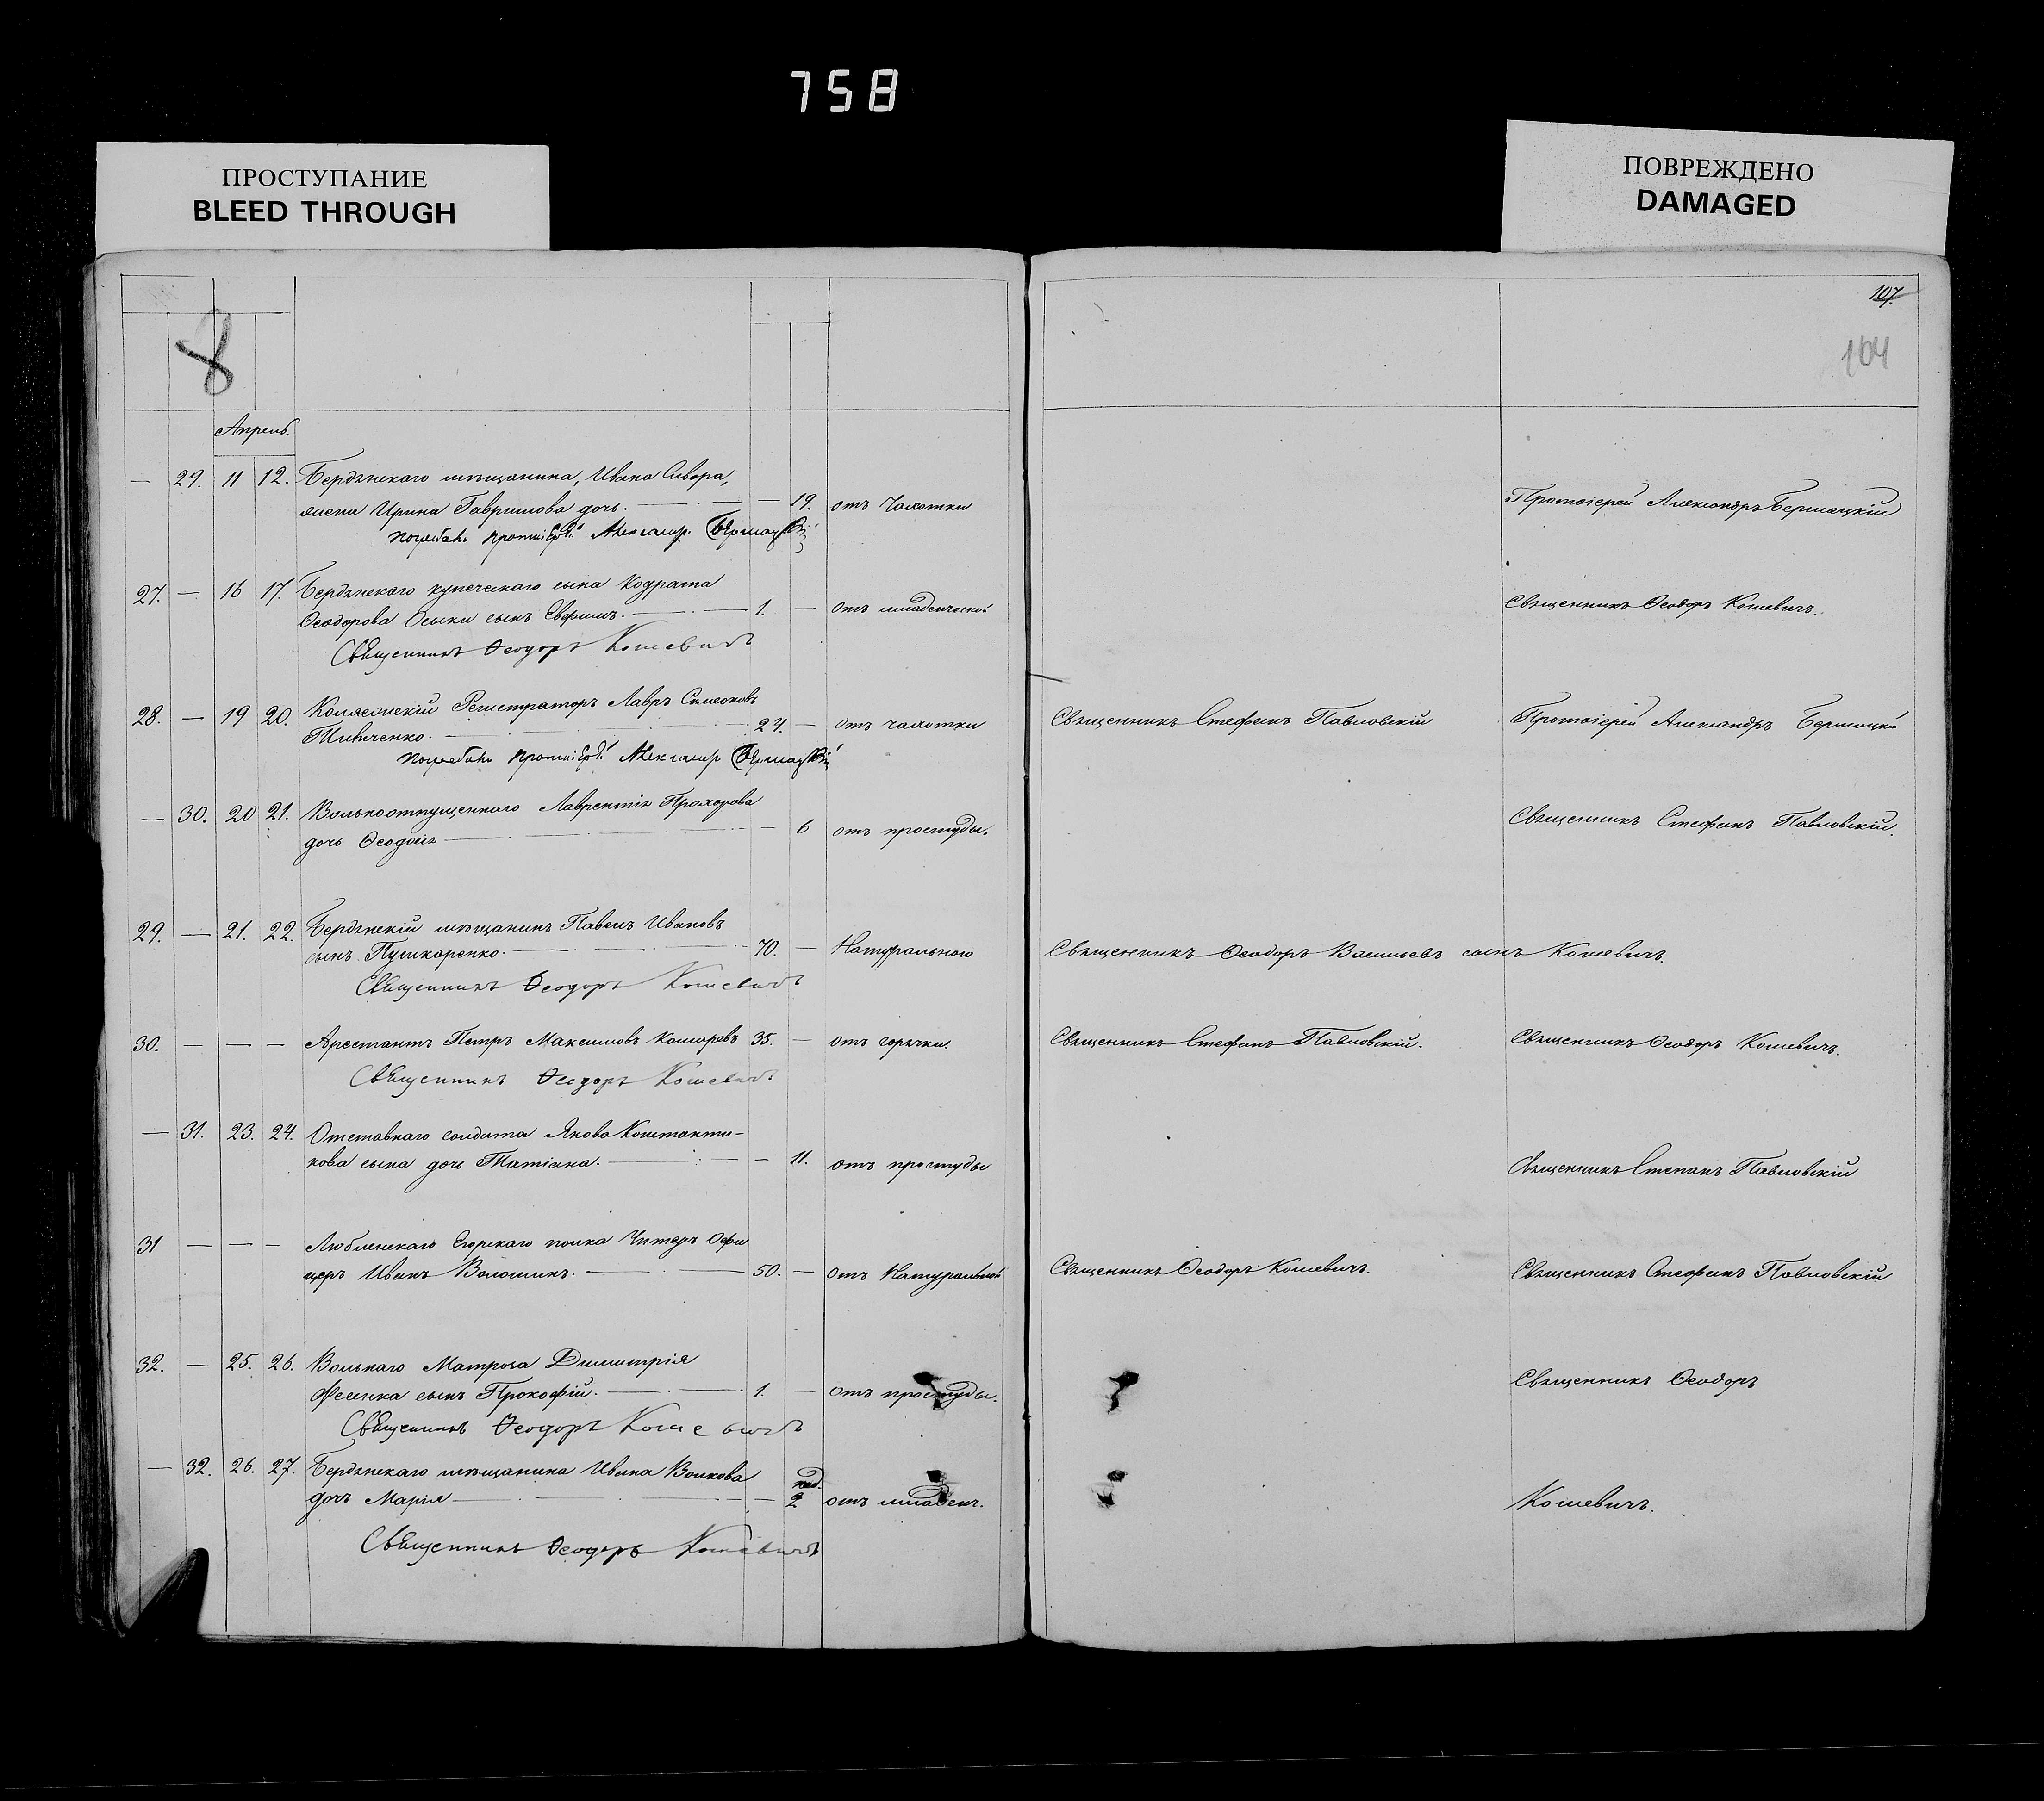 758
ПРОСТУПАНИЕ
BLEED THROUGH
ПОВРЕЖДЕНО
DAMAGED
107.
8
104
Апрель.
— 29. 11 12. Бердянскаго мѣщанина, Ивана Сивора,
жена Ирина Гаврилова дочь. — — 19. отъ чахотки Протоіерей Александръ Бермацкій
27. — 16 17. Бердянскаго купеческаго сына Кодрата
Ѳеодорова Осыки сынъ Евфимъ. — 1. — отъ младенческой Священникъ Ѳеодоръ Кошевичъ.
Священникъ Ѳеодоръ Кошевичъ
28. — 19 20. Коллежскій Регистраторъ Лавръ Симеоновъ
24. — отъ чахотки Священникъ Стефанъ Павловскій Протоіерей Александръ
— 30. 20 21. Вольноотпущеннаго Лаврентія Прохорова
дочь Ѳеодосія — — 6 отъ простуды. Священникъ Стефанъ Павловскій.
29. — 21. 22. Бердянскій мѣщанинъ Павелъ Ивановъ
сынъ Пушкаренко. — 70. — Натурального Священникъ Ѳеодоръ Васильевъ сынъ Кошевичъ.
Священникъ Ѳеодоръ Кошевичъ
30. — — — Арестантъ Петръ Максимовъ Комаревъ 35. — отъ горячки. Священникъ Стефанъ Павловскій. Священникъ Ѳеодоръ Кошевичъ.
Священникъ Ѳеодоръ Кошевичъ
— 31. 23. 24. Отставнаго солдата Якова Константи-
нова сына дочь Татіана. — — 11. отъ простуды Священникъ Степанъ Павловскій
31 — — — Люблинскаго Егерскаго полка Унтеръ Офи
церъ Иванъ Волошинъ. — 50. — отъ Натуральной Священникъ Ѳеодоръ Кошевичъ. Священникъ Стефанъ Павловскій
32. — 25. 26. Вольнаго Матроза Димитрія
Фесенка сынъ Прокофій. — 1. — отъ простуды. Священникъ Ѳеодоръ
Священникъ Ѳеодоръ Кошевичъ
— 32. 26. 27. Бердянскаго мѣщанина Ивана Волкова нед.
дочь Марія — — 2 отъ младенч. Кошевичъ.
Священникъ Ѳеодоръ Кошевичъ